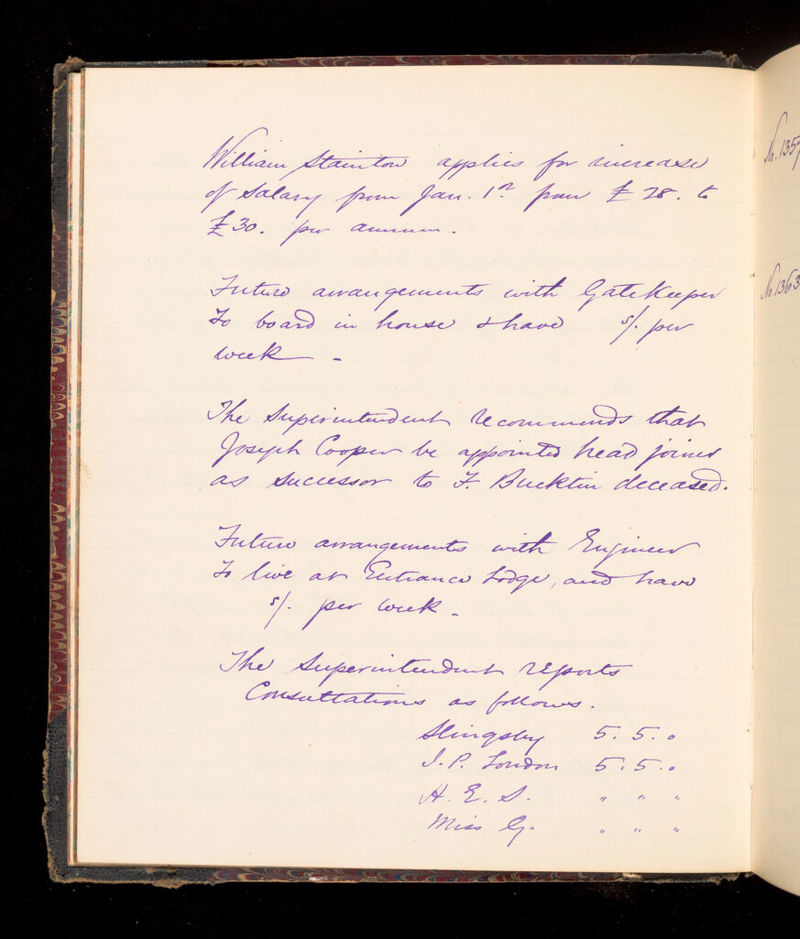 William Stainton applies for increase
of Salary from Jan. 1st from £28. to
£30. per annum.
Future arrangements with Gatekeeper
To board in house & have s/. per
week -
The Superintendent recommends that
Joseph Cooper be appointed head joiner
as successor to F. Bucktin deceased.
Future arrangements with Engineer
To live at Entrance Lodge, and have
s/. per week -
The Superintendent reports
Consultations as follows.
Slingsby 5. 5. 0
J. P. London 5. 5. 0
H. E. S. " " "
Miss G. " " "
No. 1357
No 1363